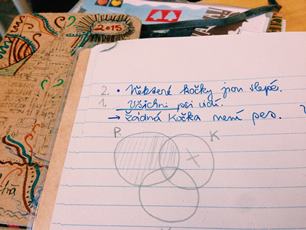 2015
2. • Některé kočky jsou slepé.
1. Všichni psi vidí.
→ Žádná kočka není pes.
P K